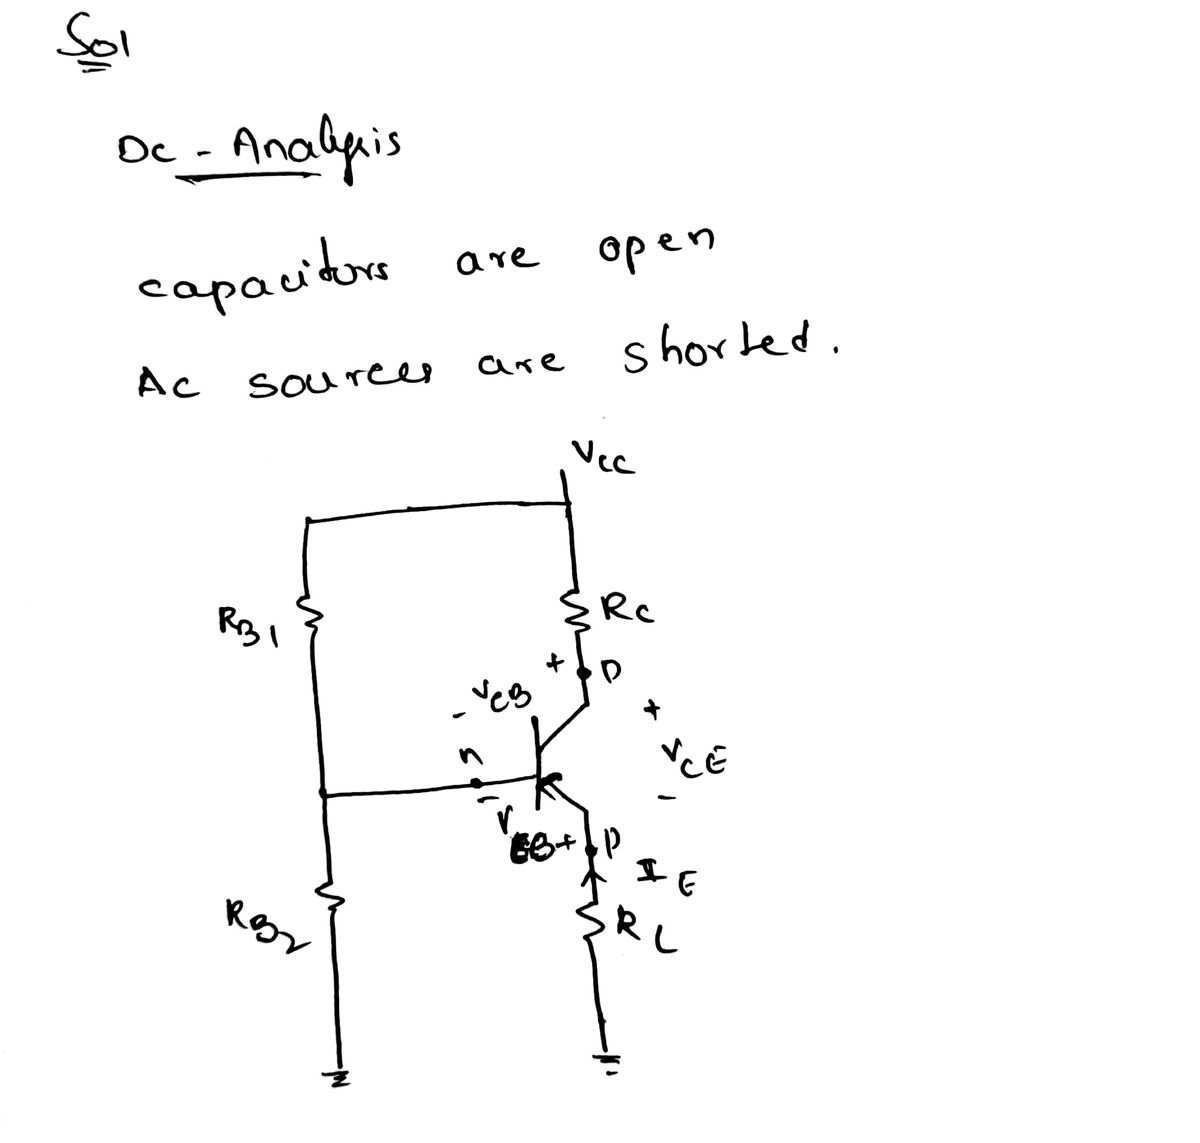 Sol
Dc - Analysis
capacitors are open
Ac sources are shorted.
Vcc
RB1
Rc
+ P
- VCB
n
+
VCE
-
- VEB + P
IE
RB2
RL